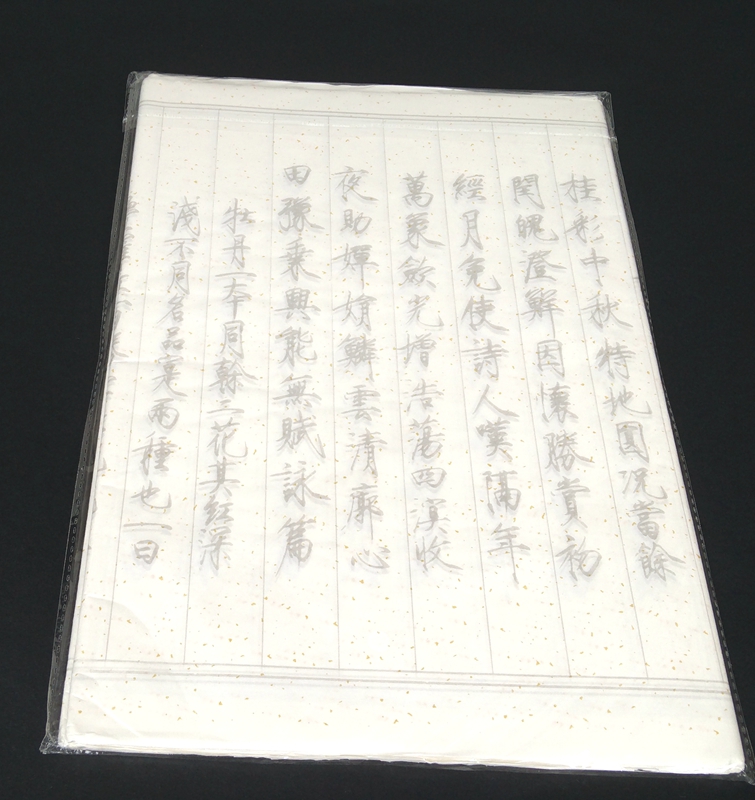 桂彩中秋特地圓況當餘
閏魄澄鮮因懷勝賞初
經月免使詩人嘆隔年
萬象斂光增浩蕩四溟收
夜助嬋娟鱗雲清廓心
田豫乘興能無賦詠篇
牡丹一本同榦二花其紅深
淺不同名品寔兩種也一曰